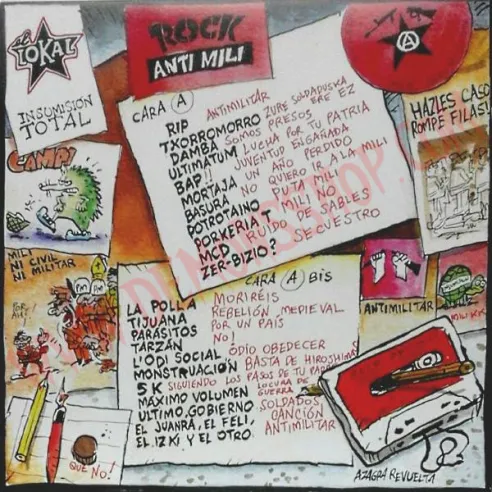 el LOKAL
INSUMISIÓN TOTAL
ROCK
ANTI MILI
A
HAZLES CASO
ROMPE FILAS!
CARA A
RIP ANTIMILITAR
TXORROMORRO ZURE SOLDADUSKA ERE EZ
DAMBA SOMOS PRESOS
ULTIMATUM LUCHA POR TU PATRIA
BAP!! JUVENTUD ENGAÑADA
MORTAJA UN AÑO PERDIDO
BASURA NO QUIERO IR A LA MILI
POTROTAINO PUTA MILI
PORKERIA T MILI NO
MCD RUIDO DE SABLES
ZER-BIZIO? SECUESTRO
CAMPI
MILI
NI CIVIL
NI MILITAR
CARA A BIS
LA POLLA MORIRÉIS
TIJUANA REBELIÓN MEDIEVAL
PARÁSITOS POR UN PAÍS
TARZÁN NO!
L'ODI SOCIAL ODIO OBEDECER
MONSTRUACIÓN BASTA DE HIROSHIMAS
5K SIGUIENDO LOS PASOS DE TU PADRE
MÁXIMO VOLUMEN LOCURA DE GUERRA
ULTIMO GOBIERNO SOLDADOS
EL JUANRA, EL FELI, CANCIÓN
EL IZKI Y EL OTRO. ANTIMILITAR
ANTIMILITAR
MILI KK
QUE NO!
AZAGRA REVUELTA